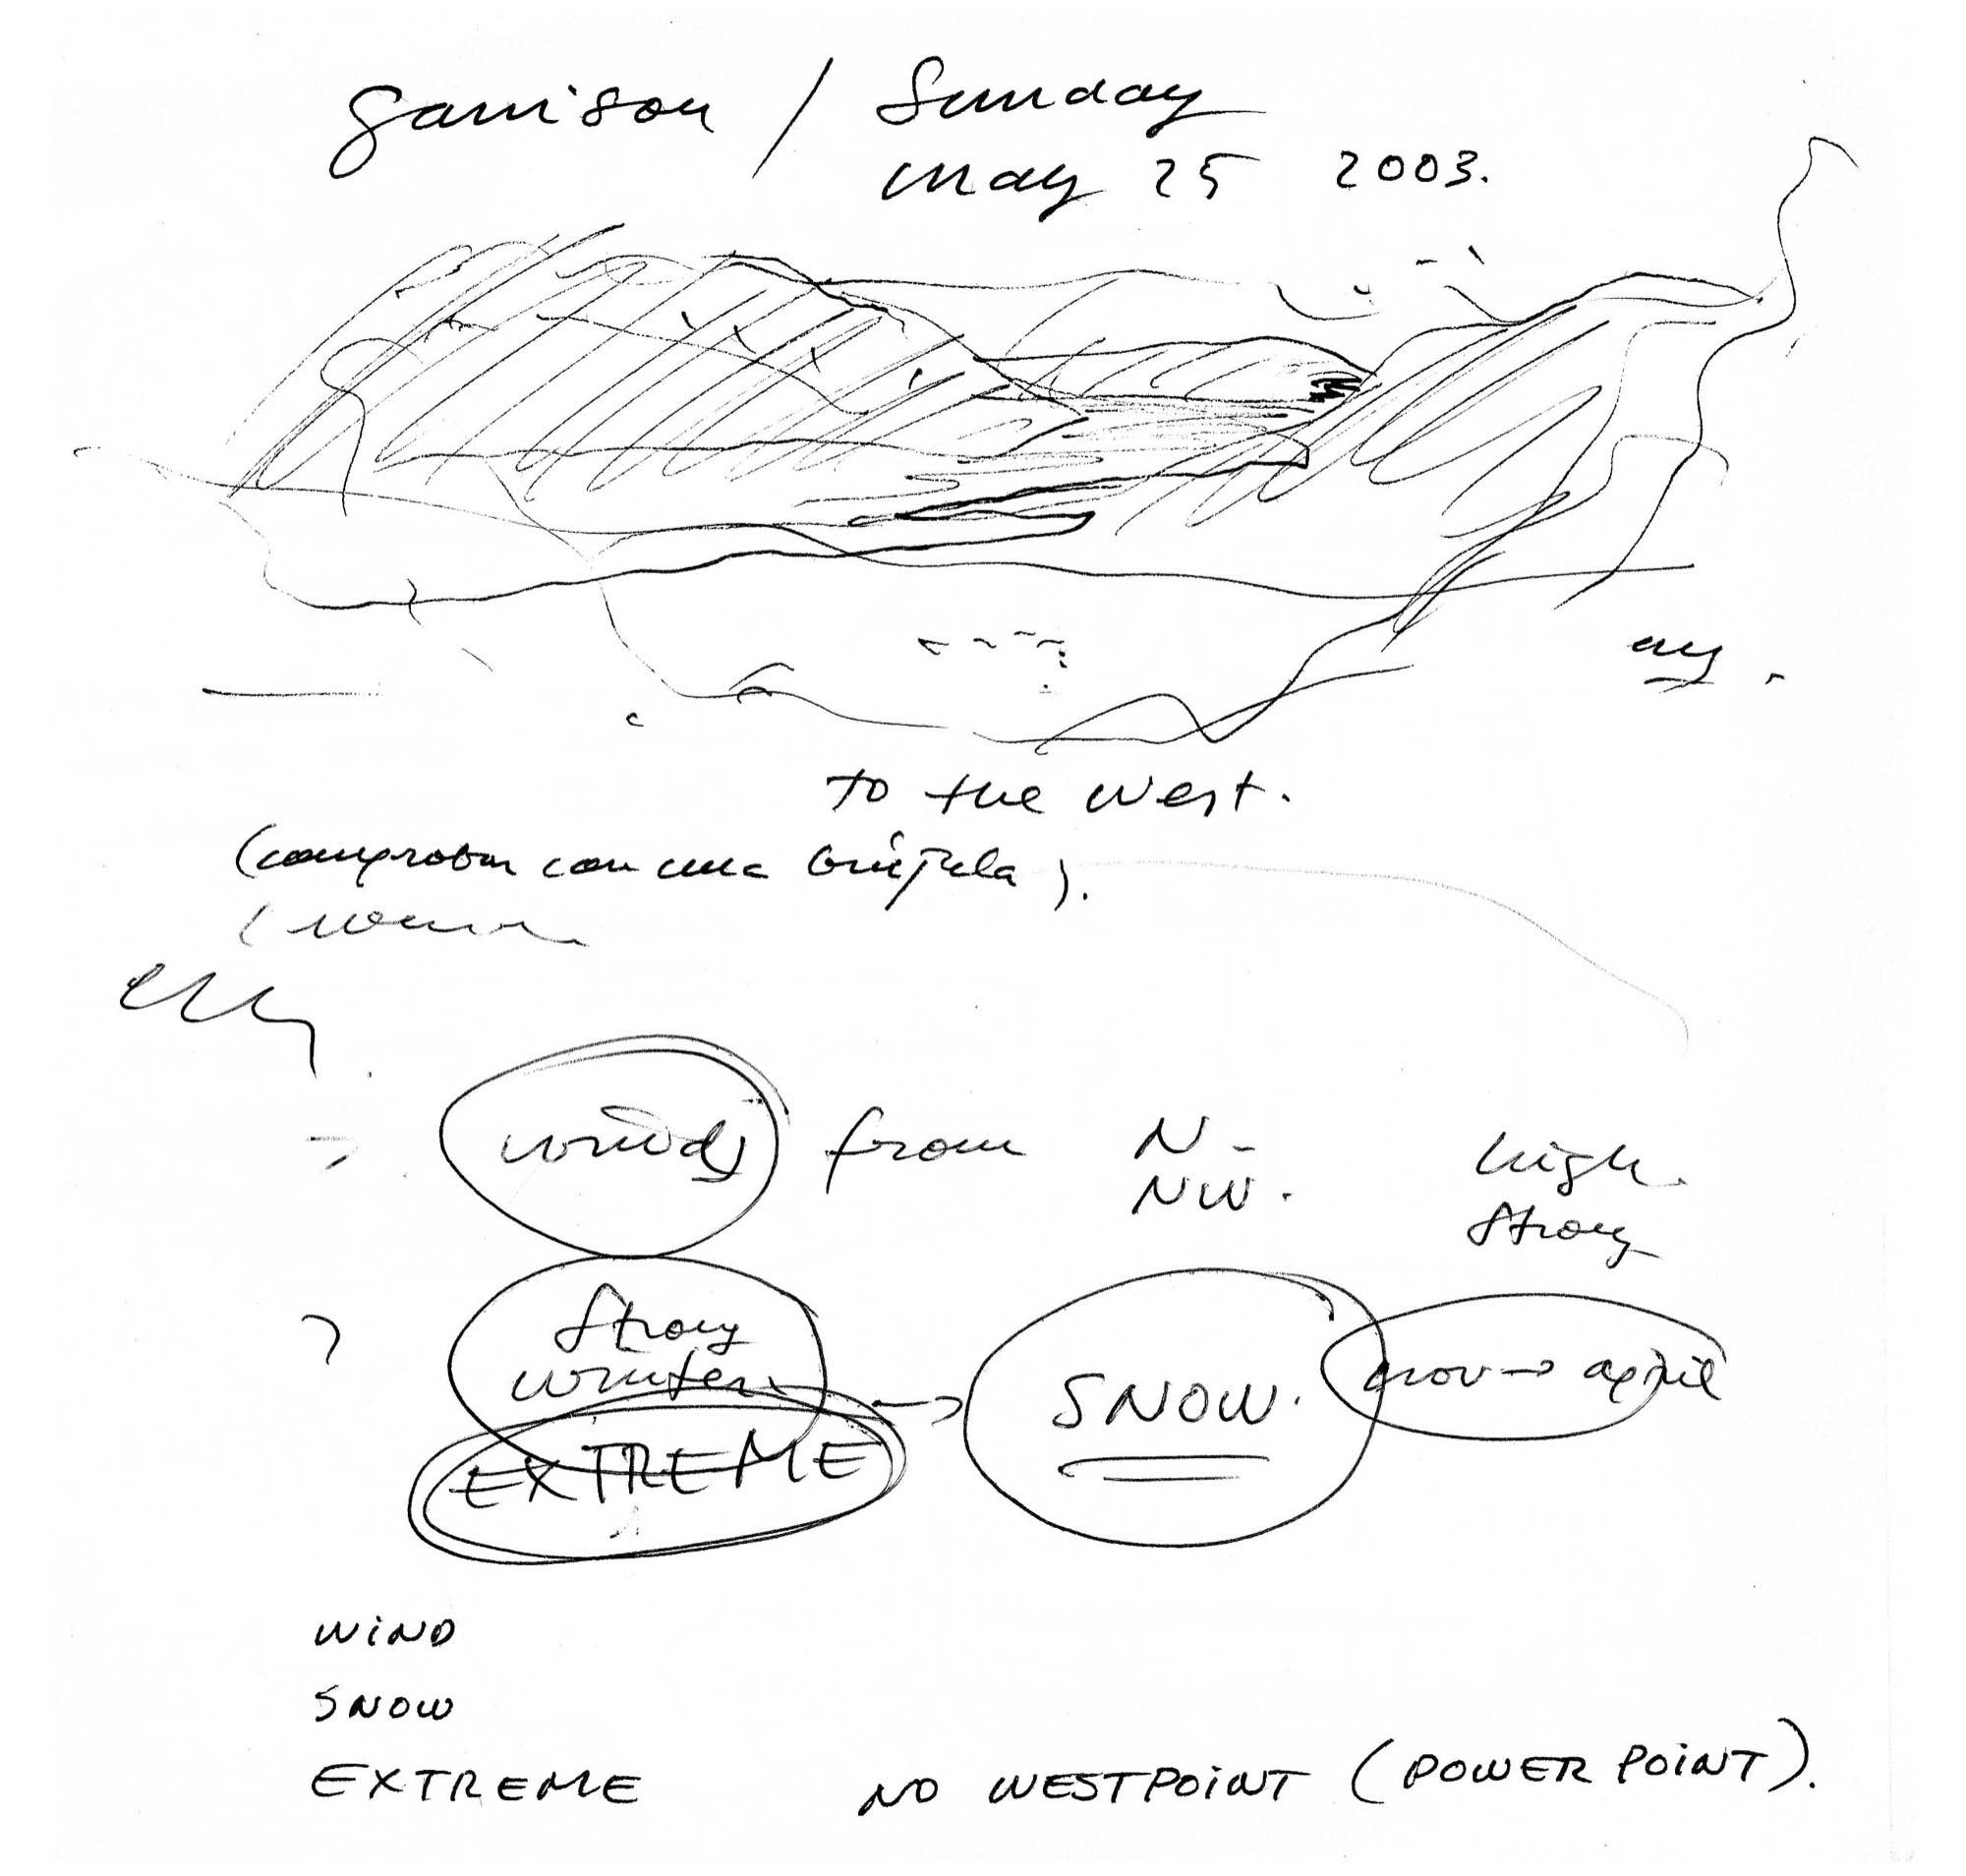 Garrison / Sunday
may 25 2003.
to the west.
(comprobar con una brújula).
winds from N -
NW.
high.
strong
strong
winter
EXTREME
→ SNOW.
nov → april
WIND
SNOW
EXTREME NO WESTPOINT (POWER POINT).